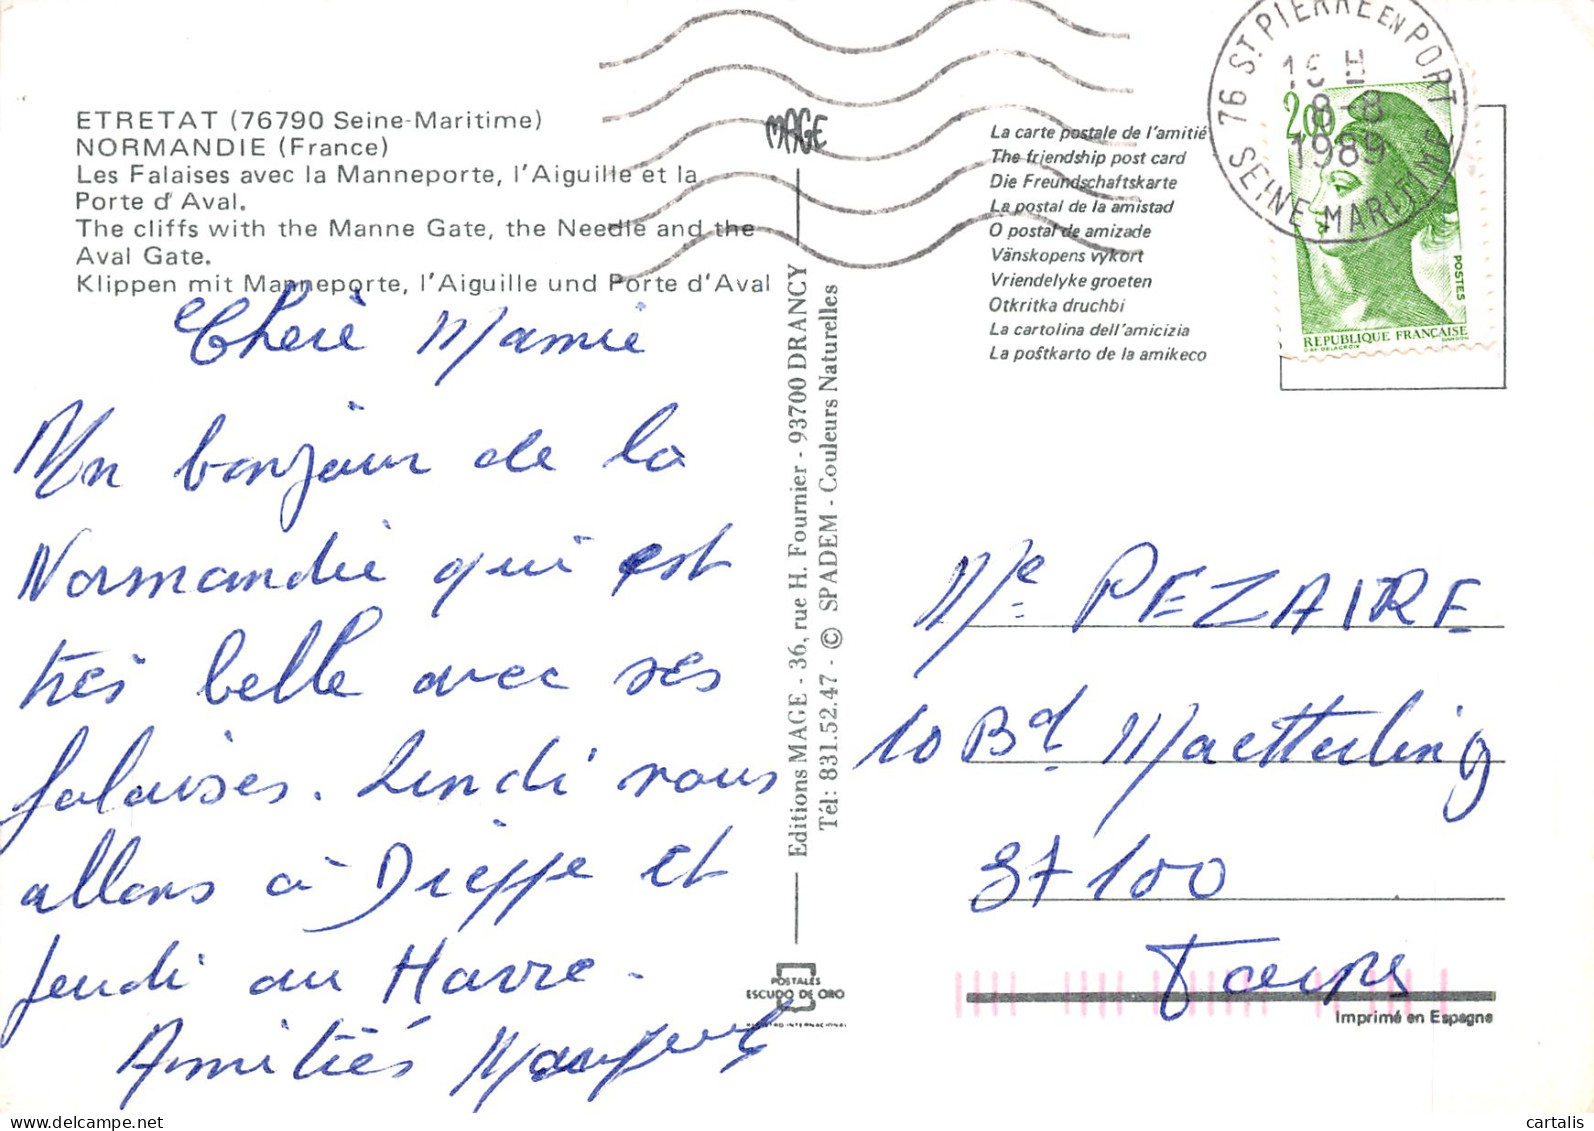 ETRETAT (76790 Seine-Maritime)
NORMANDIE (France)
Les Falaises avec la Manneporte, l'Aiguille et la
Porte d'Aval.
The cliffs with the Manne Gate, the Needle and the
Aval Gate.
Klippen mit Manneporte, l'Aiguille und Porte d'Aval
Chère Mamie
Un bonjour de la
Normandie qui est
très belle avec ses
falaises. Lundi nous
allons à Dieppe et
jeudi au Havre.
Amitiés
MAGE
Editions MAGE - 36, rue H. Fournier - 93700 DRANCY
Tél: 831.52.47 - © SPADEM - Couleurs Naturelles
POSTALES
ESCUDO DE ORO
REGISTRO INTERNACIONAL
La carte postale de l'amitié
The friendship post card
Die Freundschaftskarte
La postal de la amistad
O postal de amizade
Vänskopens vykort
Vriendelyke groeten
Otkritka druchbi
La cartolina dell'amicizia
La poŝtkarto de la amikeco
76 ST PIERRE EN PORT
H
8-8
1989
SEINE MARITIME
2,00
POSTES
REPUBLIQUE FRANÇAISE
D'AP. DELACROIX GANDON
Me PEZAIRE
10 Bd Maetterling
37100
Tours
Imprimé en Espagne
cartalis
www.delcampe.net